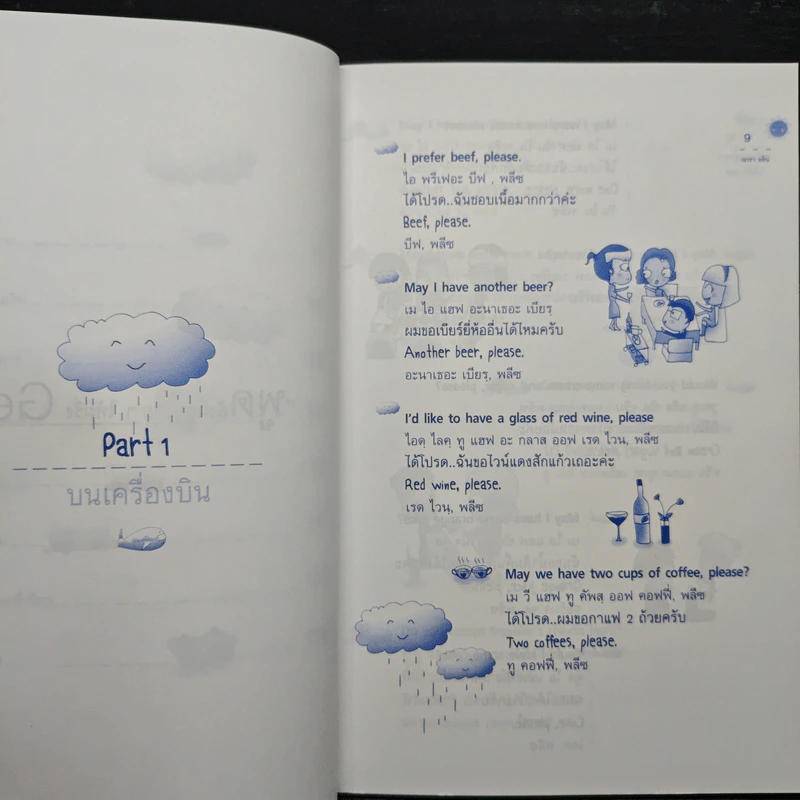 Part 1
บนเครื่องบิน
9
I prefer beef, please.
ไอ พรีเฟอะ บีฟ , พลีซ
ได้โปรด..ฉันชอบเนื้อมากกว่าค่ะ
Beef, please.
บีฟ, พลีซ
May I have another beer?
เม ไอ แฮฟ อะนาเธอะ เบียรฺ
ผมขอเบียร์ยี่ห้ออื่นได้ไหมครับ
Another beer, please.
อะนาเธอะ เบียรฺ, พลีซ
I'd like to have a glass of red wine, please
ไอดฺ ไลคฺ ทู แฮฟ อะ กลาส ออฟ เรด ไวนฺ, พลีซ
ได้โปรด..ฉันขอไวน์แดงสักแก้วเถอะค่ะ
Red wine, please.
เรด ไวนฺ, พลีซ
May we have two cups of coffee, please?
เม วี แฮฟ ทู คัพสฺ ออฟ คอฟฟี่, พลีซ
ได้โปรด..ผมขอกาแฟ 2 ถ้วยครับ
Two coffees, please.
ทู คอฟฟี่, พลีซ